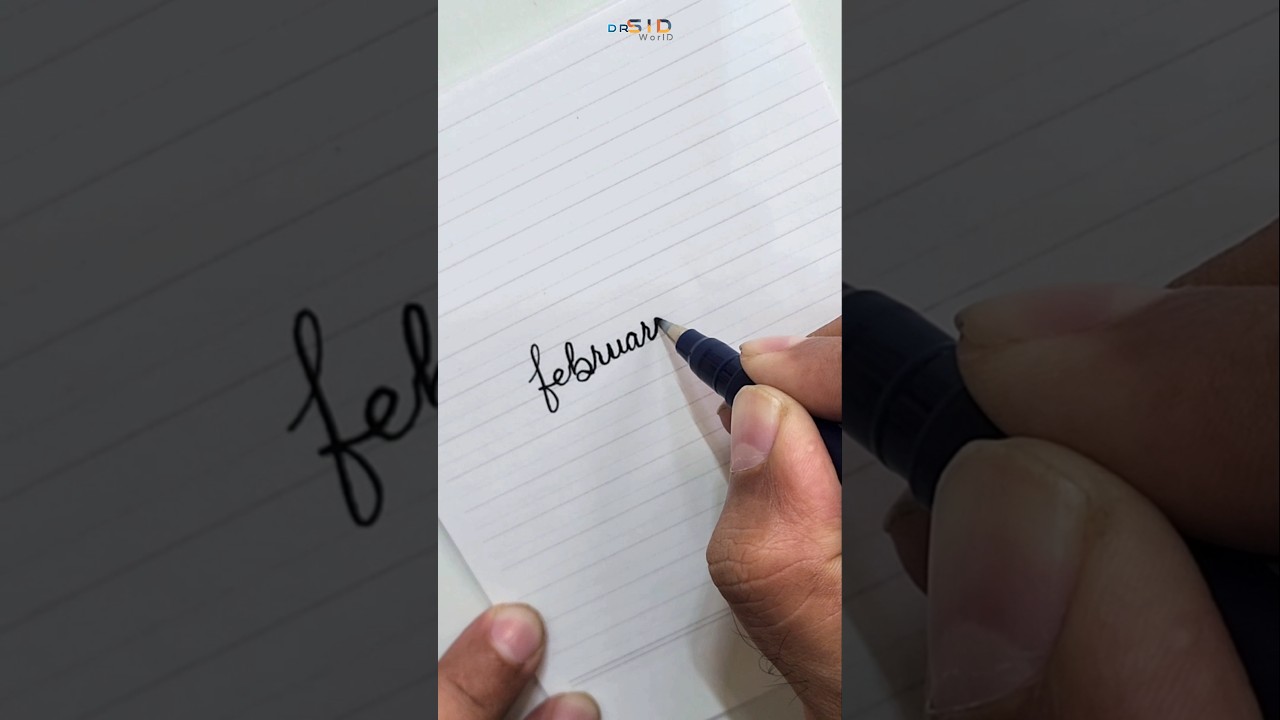 DR SID
WorlD
februar